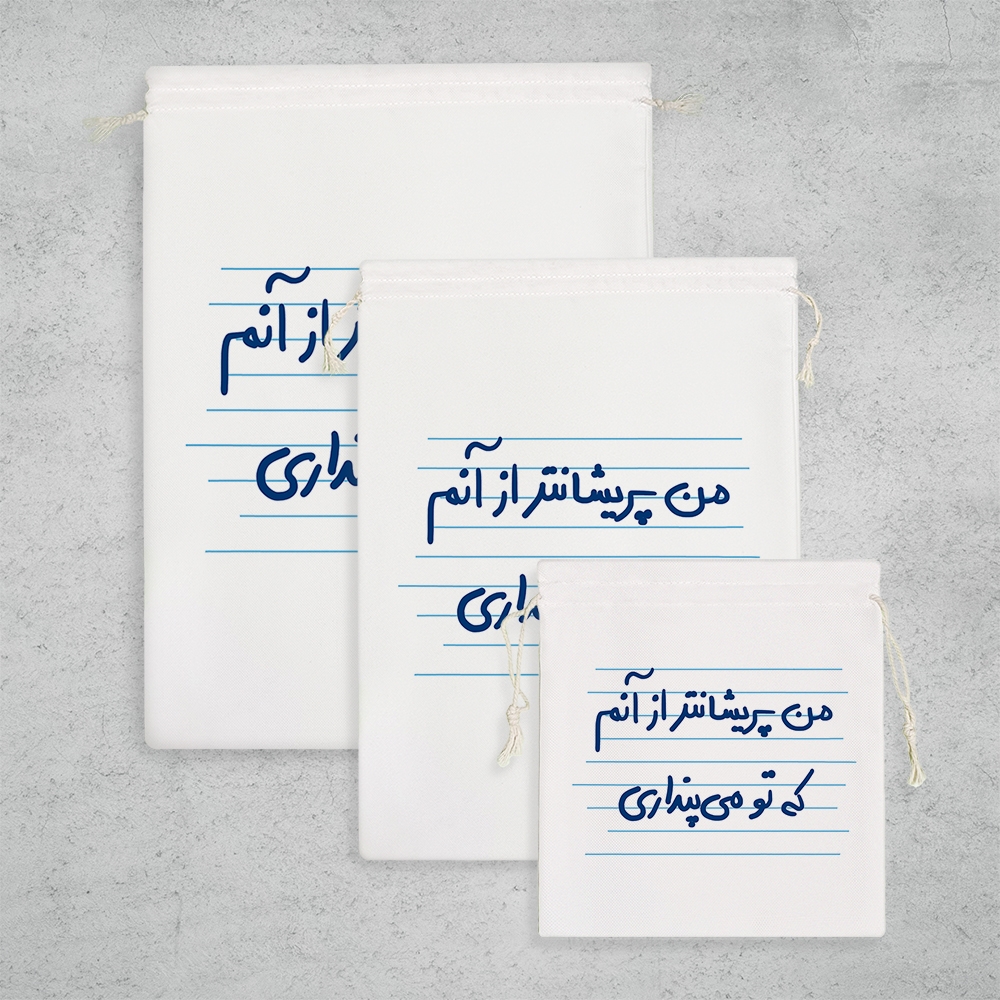 از آنم
من پریشانتر از آنم
من پریشانتر از آنم
که تو می‌پنداری